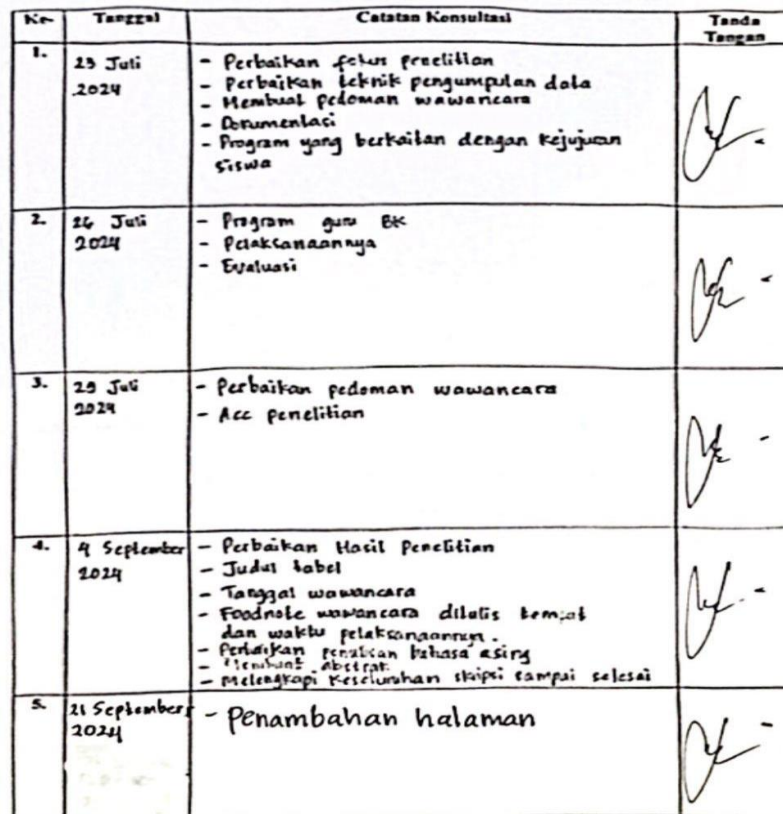 Ke- Tanggal Catatan Konsultasi Tanda Tangan
1. 23 Juli 2024
- Perbaikan fokus penelitian
- Perbaikan teknik pengumpulan data
- Membuat pedoman wawancara
- Dokumentasi
- Program yang berkaitan dengan kejujuran
siswa
2. 26 Juli 2024
- Program guru BK
- Pelaksanaannya
- Evaluasi
3. 29 Juli 2024
- Perbaikan pedoman wawancara
- Acc penelitian
4. 4 September 2024
- Perbaikan Hasil Penelitian
- Judul tabel
- Tanggal wawancara
- Foodnote wawancara ditulis tempat
dan waktu pelaksanaannya.
- Perbaikan penulisan bahasa asing
- Membuat abstrak
- Melengkapi keseluruhan skripsi sampai selesai
5. 21 September 2024
- Penambahan halaman